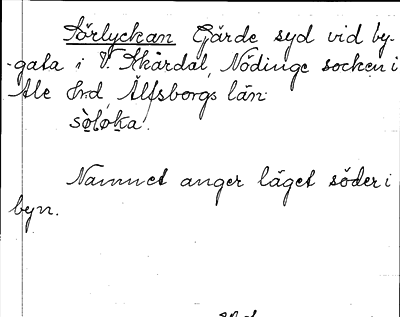 Sörlyckan Gärde syd vid by-
-gata i V. Skårdal, Nödinge socken i
Ale hrd, Älfsborgs län.
sölöka.
Namnet anger läget söder i
byn.